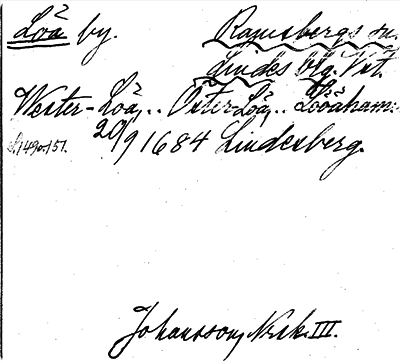 Löa by. Ramsbergs sn.
Lindes hg. Vstl.
Wester-Löa,.. Öster Löa,.. Löåham:
20/9 1684 Lindesberg.
Johansson, Nsk. III.